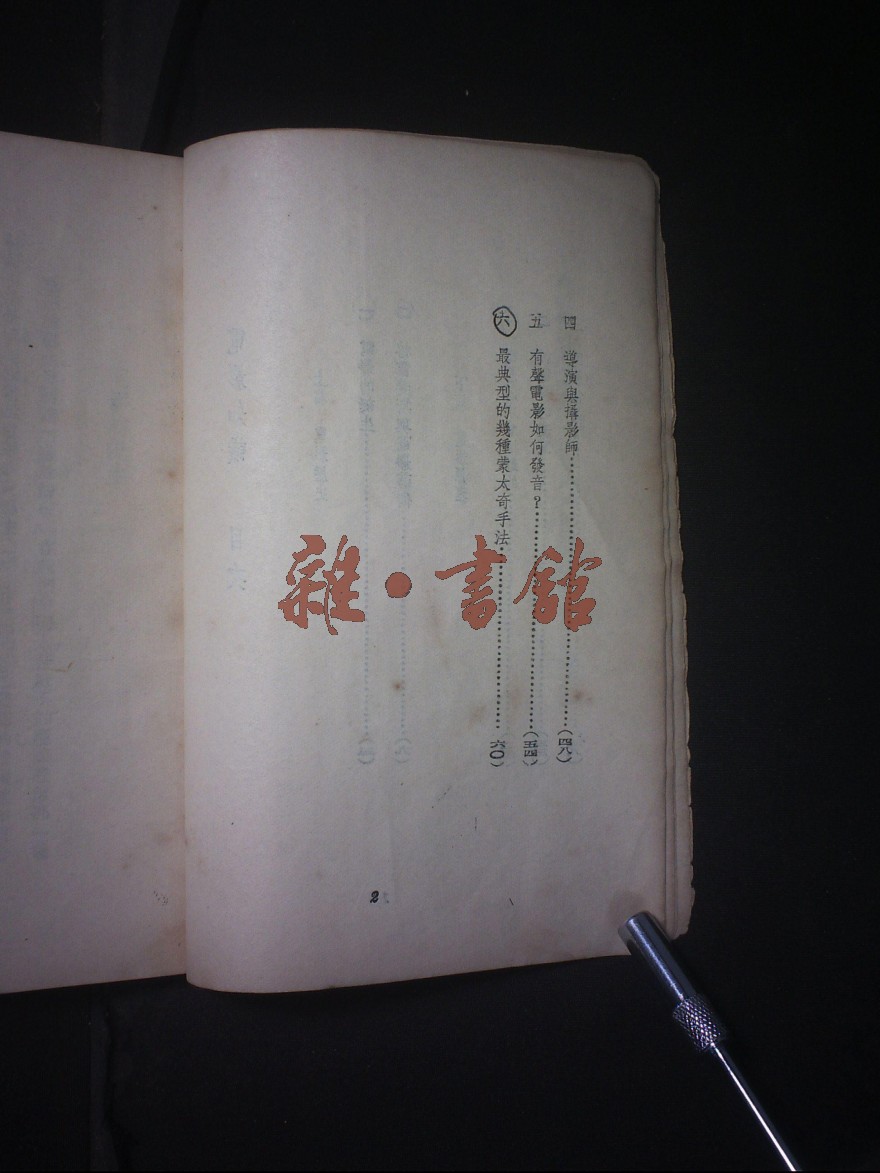 四 導演與攝影師……………………(四八)
五 有聲電影如何發音?……………………(五四)
六 最典型的幾種蒙太奇手法……………………(六〇)
2
雜·書館